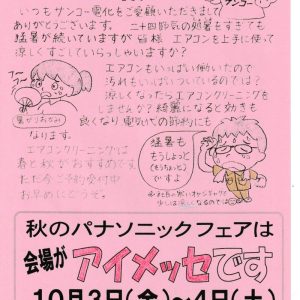 サンコー
いつもサンコー電化をご愛顧いただきまして
ありがとうございます。二十四節気の処暑をすぎても
猛暑が続いていますが皆様 エアコンを上手に使って
涼しくすごしていらっしゃいますか?
エアコンもいっぱい働いたので
汚れもいっぱいついているのでは?
涼しくなったらエアコンクリーニングを
しませんか? 綺麗になると効きも
良くなり 電気代の節約にも
なります。
暑がりおかみ
エアコンクリーニングは
春と秋がおすすめです
ただ今ご予約受付中
お早めにどうぞ。
猛暑も
もうしょっと
(もうちょっと)
ですよ
少しは涼しくなるのでは
秋のパナソニックフェアは
会場が アイメッセです
10月3日(金)~4日(土)